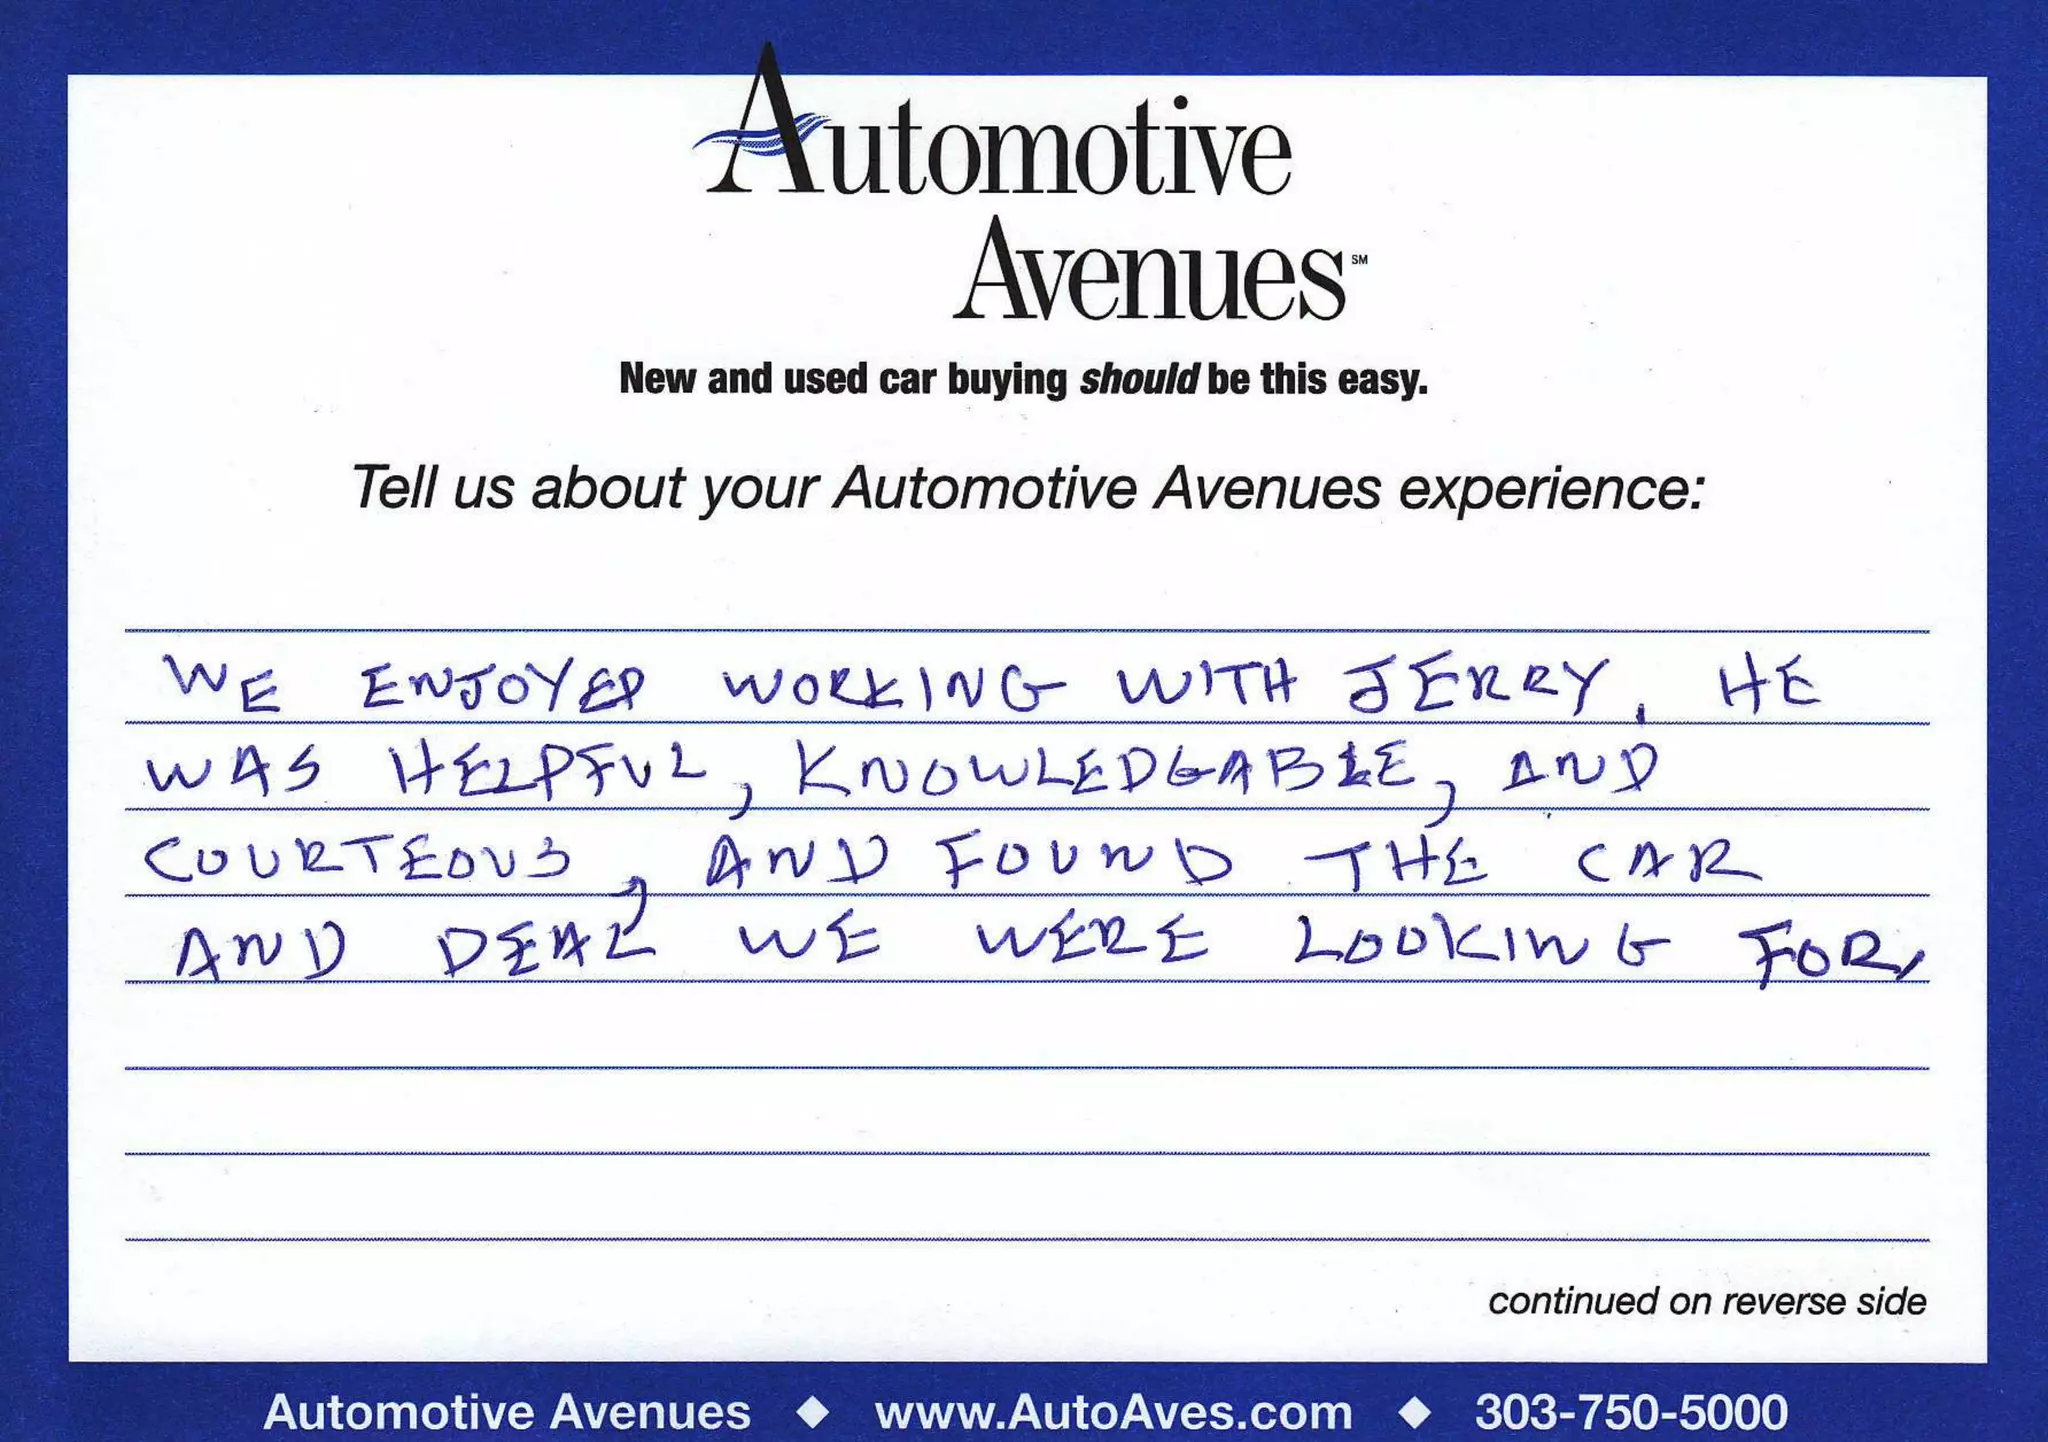 Automotive
Avenues℠
New and used car buying should be this easy.
Tell us about your Automotive Avenues experience:
WE ENJOYED WORKING WITH JERRY. HE
WAS HELPFUL, KNOWLEDGABLE, AND
COURTEOUS, AND FOUND THE CAR
AND DEAL WE WERE LOOKING FOR.
continued on reverse side
Automotive Avenues ◆ www.AutoAves.com ◆ 303-750-5000